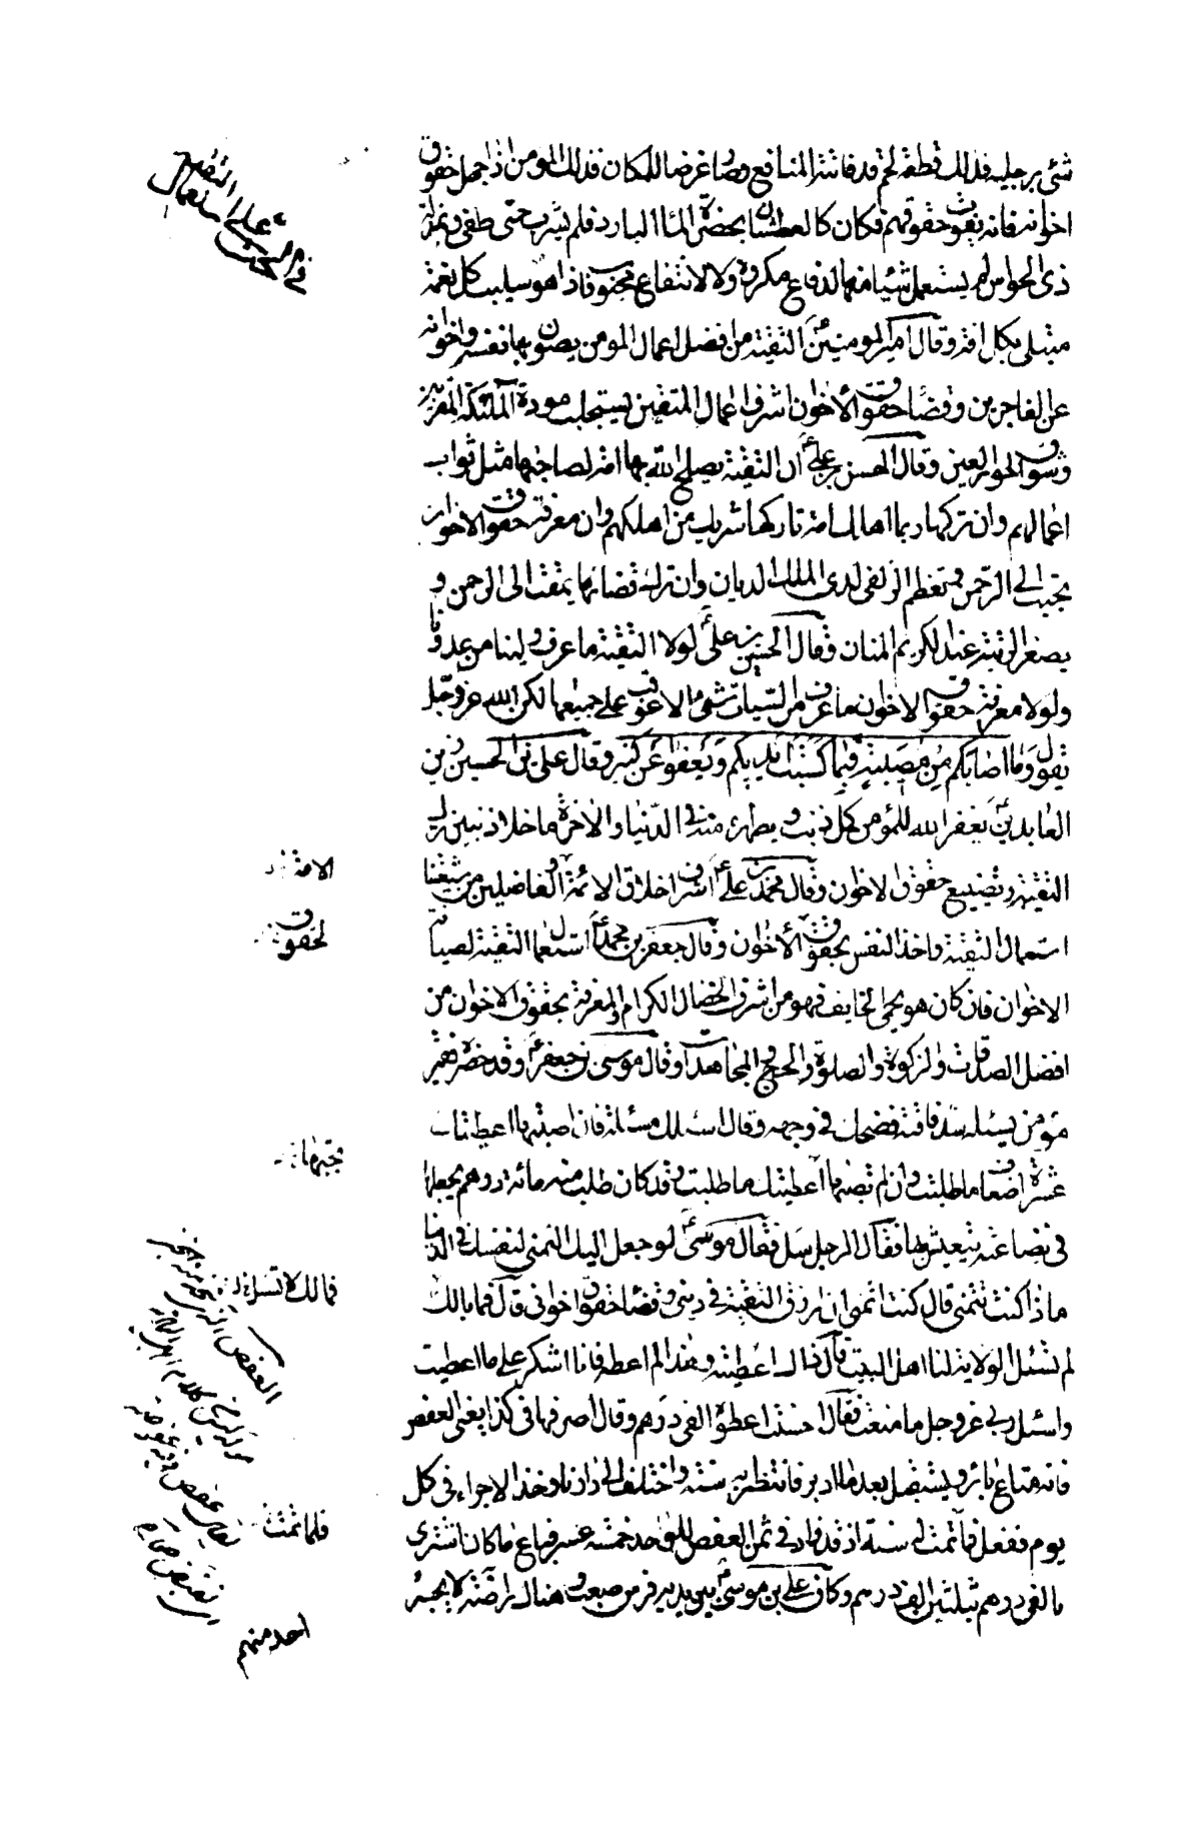 شئ برجليه فذلك قطعة لحم قد فاتته المنافع وصار غرضا للمكان فذلك المومن اذا جهل حقوق
اخوانه فانه يفوت حقوقهم فكان كالعطشان بحضرة الماء البارد فلم يشرب حتى طفى وبمنزلة
ذى الحواس لم يستعمل شيئا منها لدفاع مكروه ولا لانتفاع محبوب فاذا هو سليب كل نعمة
مبتلى بكل افة وقال امير المومنين ع التقية من افضل اعمال المومن يصون بها نفسه واخوانه
عن الفاجرين وقضاء حقوق الأخوان اشرف اعمال المتقين يستجلب مودة الملئكة المقربين
وشوق الحور العين وقال الحسن بن على ع ان التقية يصلح الله بها امة لصاحبها مثل ثواب
اعمالهم وان تركها ربما اهلك امة تاركها شريك من اهلكهم وان معرفة حقوق الاخوان
تحبب الى الرحمن وتعظم الزلفى لدى الملك الديان وان ترك قضائها يمقت الى الرحمن و
يصغر الرتبة عند الكريم المنان وقال الحسين بن على ع لولا التقية ما عرف ولينا من عدونا
ولولا معرفة حقوق الاخوان ما عرف من السيئات شئ الا عوقب على جميعها لكن الله عز وجل
يقول وما اصابكم من مصيبة فبما كسبت ايديكم ويعفوا عن كثير وقال على بن الحسين زين
العابدين ع يغفر الله للمؤمن كل ذنب ويطهره منه فى الدنيا والاخرة ما خلا ذنبين ترك
التقية وتضييع حقوق الاخوان وقال محمد بن على ع اشرف اخلاق الائمة والفاضلين من شيعتنا
استعمال التقية واخذ النفس بحقوق الأخوان وقال جعفر بن محمد ع استعمال التقية لصيانة
الاخوان فان كان هو يحمى الخايف فهو من اشرف الخصال الكرام والمعرفة بحقوق الاخوان من
افضل الصدقات والزكوة والصلوة والحج والمجاهدات وقال موسى بن جعفر ع وقد حضره فقير
مؤمن يسئله سد فاقته فضحك فى وجهه وقال اسئلك مسئلة فان اصبتها اعطيتك
عشرة اضعاف ما طلبت وان لم تصبها اعطيتك ما طلبت وقد كان طلب منه مائة درهم يجعلها
فى بضاعته يتعيش بها فقال الرجل سل فقال موسى ع لو جعل اليك التمنى لنفسك فى الدنيا
ماذا كنت تتمنى قال كنت اتمنى ان ارزق التقية فى دينى وقضاء حقوق اخوانى قال فما بالك
لم تسئل الولاية لنا اهل البيت قال ذاك اعطيته وهذا لم اعطه فانا اشكر على ما اعطيت
واسئل ربى عز وجل ما منعت فقال احسنت اعطوه الفى درهم وقال اصرفها فى كذا يعنى العفص
فانه متاع بائر ويستقبل بعد ما ادبر فانتظر به سنة واختلف الى دارنا وخذ الاجراء فى كل
يوم ففعل فما تمت له سنة اذ قد زاد فى ثمن العفص للواحد خمسة عشر فباع ما كان اشترى
بالفى درهم بثلثين الف درهم وكان على بن موسى ع بين يديه فرس صعب وهناك راضة لا يجسر
احد منهم
فى الحث على استعمال التقية
الائمة
لحقوق
فما لك لا تسئل
فلما تمت